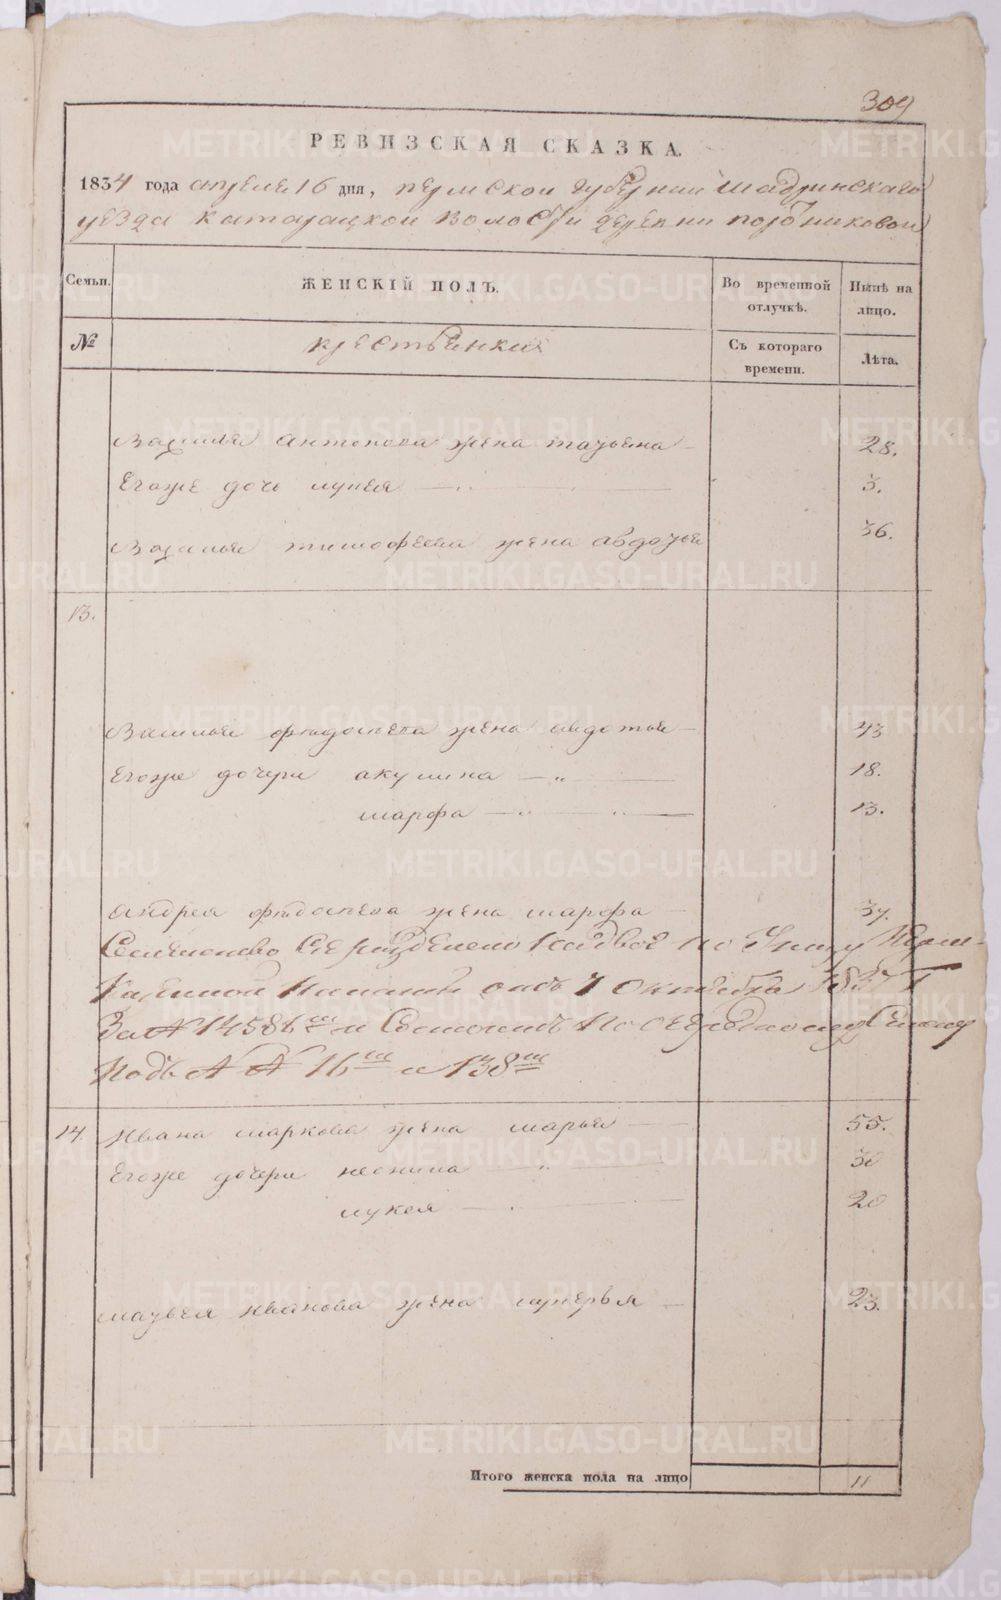 309
РЕВИЗСКАЯ СКАЗКА.
1834 года апреля 16 дня, пермской губернии Шадринскаго
уезда катайцкой волости деревни
Семьи. ЖЕНСКІЙ ПОЛЪ. Во временной отлучкѣ. Нынѣ на лицо.
№ крестьянки Съ котораго времени. Лѣта.
Василья Антонова жена татьяна 28.
Егоже дочь лукея 3.
Василья тимофеева жена авдотья 36.
13.
Василья фадеева жена авдотья 43
Егоже дочери акулина 18.
марфа 13.
Андрея жена марфа 37.
Семейство Сие разделено надвое по Указу
Казенной Палаты отъ 7 Октября
За № 14586 м и
Подъ № № 16 м и 138 м
14. Ивана маркова жена марья 55.
Егоже дочери неонила 30
лукея 20
матвея иванова жена 23.
Итого женска пола на лицо 11
METRIKI.GASO-URAL.RU